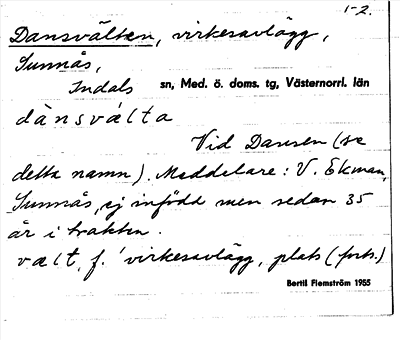 1-2.
Dansvälten, virkesavlägg,
Sunnås,
Indals sn, Med. ö. doms. tg, Västernorrl. län
dànsvál̀ta
Vid Dansen (se
detta namn). Meddelare: V. Ekman,
Sunnås, ej infödd men sedan 35
år i trakten.
vält, f. 'virkesavlägg, plats (forts.)
Bertil Flemström 1955